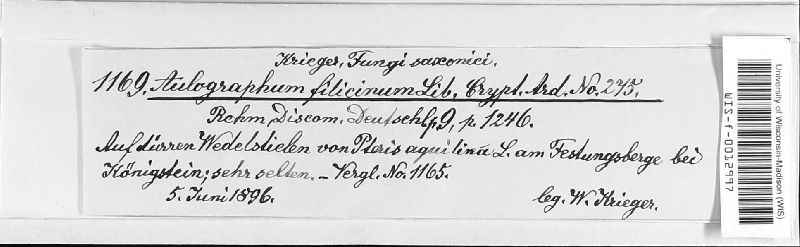 Krieger, Fungi saxonici.
1169. Aulographum filicinum Lib. Crypt. Ard. No. 275.
Rehm, Discom. Deutschl. p. 1246.
Auf dürren Wedelstielen von Pteris aquilina L. am Festungsberge bei
Königstein; sehr selten. – Vergl. No. 1165.
5. Juni 1896.
leg. W. Krieger.
University of Wisconsin-Madison (WIS)
WIS-f-0012997